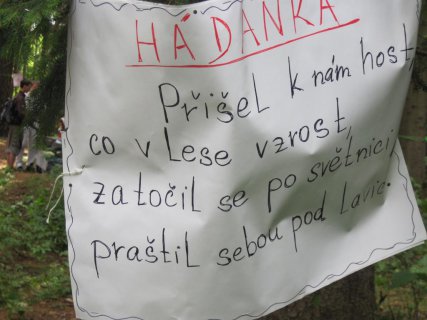 HÁDANKA
Přišel k nám host,
co v lese vzrost,
zatočil se po světnici,
praštil sebou pod lavic.